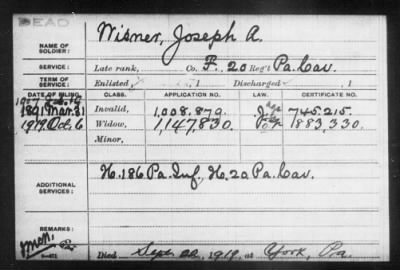 DEAD
NAME OF SOLDIER: Wisner, Joseph A.
SERVICE: Late rank, Co. F, 20 Reg't Pa. Cav.
TERM OF SERVICE: Enlisted 1 Discharged , 1
DATE OF FILING. CLASS. APPLICATION NO. LAW. CERTIFICATE NO.
1907
1891 Mar. 31 Invalid, 1,008.879. 745.215.
1919. Oct. 6 Widow, 1,147,830. 883,330.
Minor,
ADDITIONAL SERVICES: H. 186 Pa. Inf., H. 20 Pa. Cav.
REMARKS:
Died Sept. 1919, at York, Pa.